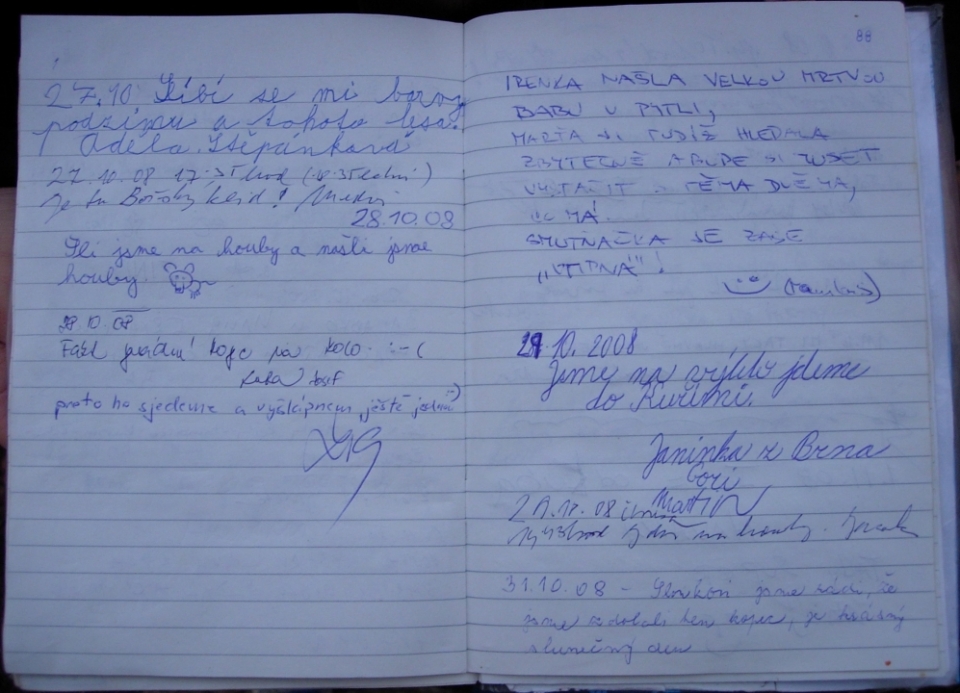 27.10. Líbí se mi barvy
podzimu a tohoto lesa.
Adéla Štěpánková
27.10.08 17.
je tu Božský klid!
28.10.08
Šli jsme na houby a našli jsme
houby.
28.10.08
Fakt parádní kopec na kolo :-(
Josef
proto ho sjedeme a vyšlápnem ještě jednou :-)
88
IRENKA NAŠLA VELKOU MRTVOU
BABU V PYTLI,
MARTA JI TUDÍŽ HLEDALA
ZBYTEČNĚ A BUDE SI MUSET
VYSTAČIT S TĚMA DVĚMA,
CO MÁ.
SMUTŇAČKA JE ZASE
„VTIPNÁ"!
29 10. 2008
Jsme na výletě jdeme
do Kuřimi.
Janinka z Brna
Martin
29.10.08
na houby.
31.10.08 - jsme rádi, že
jsme zdolali ten kopec, je krásný
slunečný den